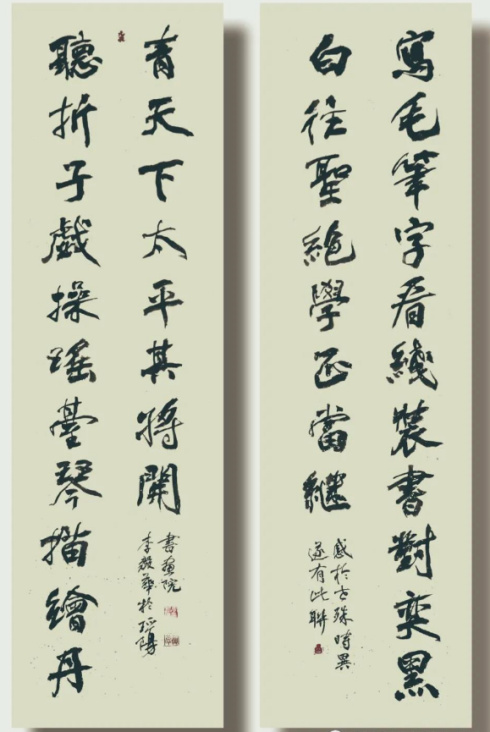 寫毛筆字看綫裝書對奕黑
白往聖絕學正當繼
感於殊時異
遂有此聯
聽折子戲操瑤臺琴描繪丹
青天下太平其將開
書畫院
李於陽